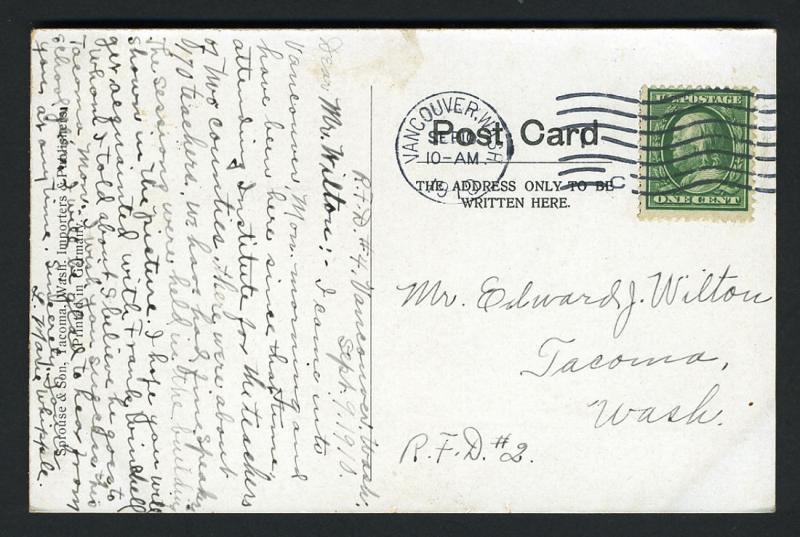 R.F.D. #4, Vancouver, Wash.
Sept. 9, 1910.
Dear Mr. Wilton:- I came into
Vancouver, Mon. morning and
have been here since that time
attending Institute for the teachers
of two counties. There were about
170 teachers, we have had fine
The sessions were held in the building
shown in the picture. I hope you will
get acquainted with Frank Winchell
whom I told about. I believe he goes to
Tacoma Mon. I wish you success in his
school. I will be glad to hear from
you at any time. Sincerely yours
L. Marie Whipple.
Sprouse & Son, Tacoma, Wash. Importers & Publishers.
Printed in Germany.
Post Card
THE ADDRESS ONLY TO BE
WRITTEN HERE.
VANCOUVER, WASH
SEP
10-AM
1910
C
U.S. POSTAGE
ONE CENT
Mr. Edward J. Wilton
Tacoma,
Wash.
R.F.D. #2.